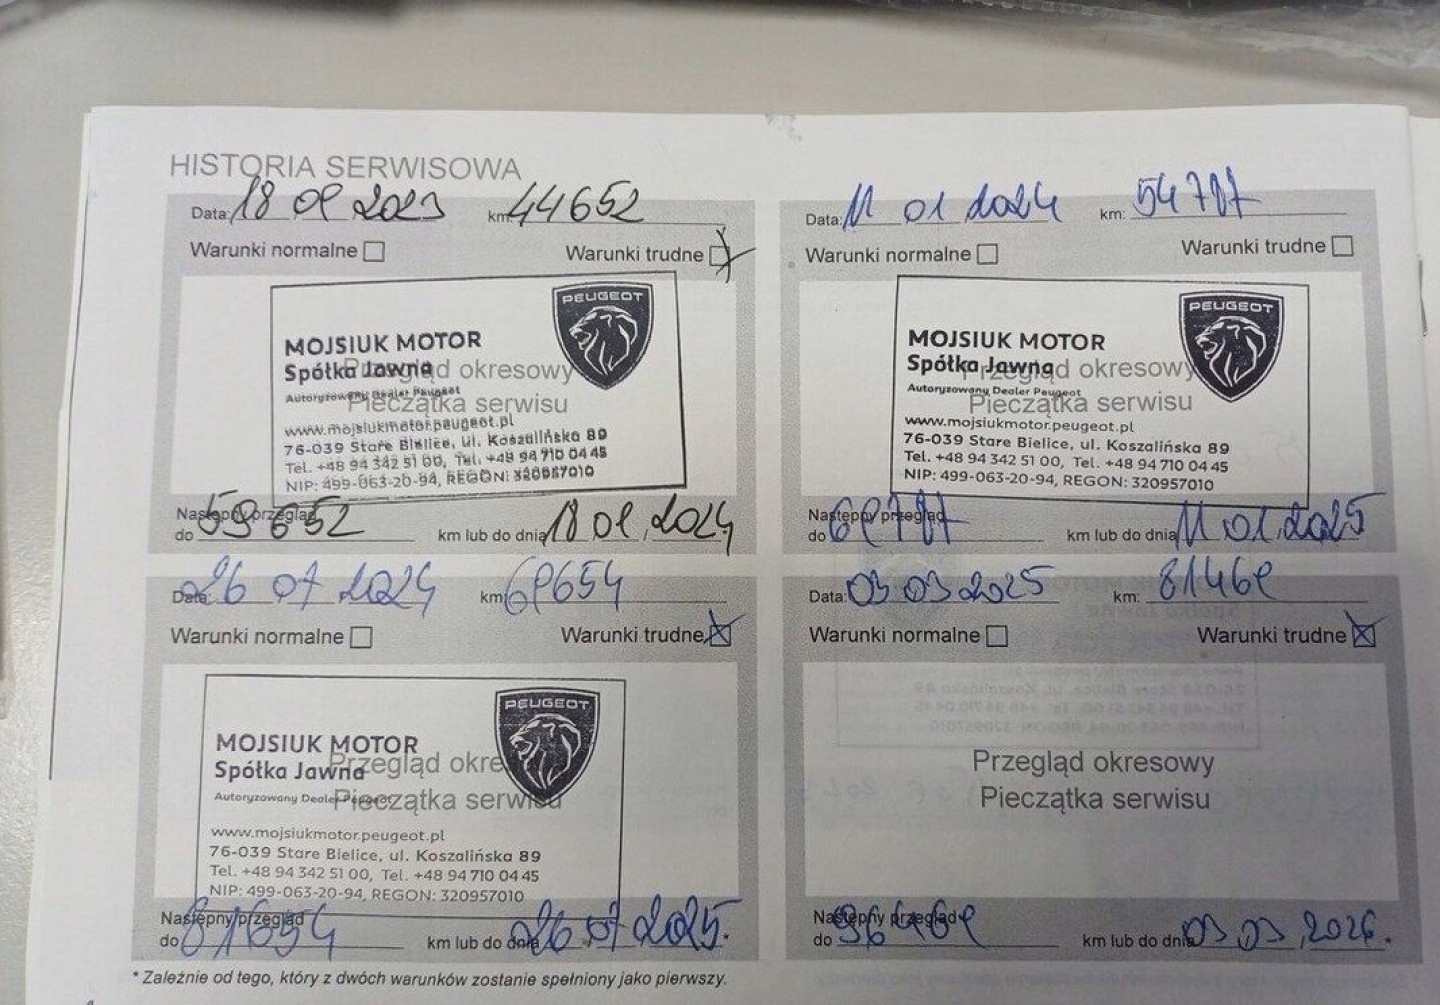 HISTORIA SERWISOWA
Data: 18 09 2023 km: 44652
Warunki normalne Warunki trudne
PEUGEOT
MOJSIUK MOTOR
Spółka Jawna
Przegląd okresowy
Autoryzowany Dealer Peugeot
Pieczątka serwisu
www.mojsiukmotor.peugeot.pl
76-039 Stare Bielice, ul. Koszalińska 89
Tel. +48 94 342 51 00, Tel. +48 94 710 04 45
NIP: 499-063-20-94, REGON: 320957010
Następny przegląd
do 59 652 km lub do dnia 18 09 2024
Data: 11 01 2024 km: 54 717
Warunki normalne Warunki trudne
PEUGEOT
MOJSIUK MOTOR
Spółka Jawna
Przegląd okresowy
Autoryzowany Dealer Peugeot
Pieczątka serwisu
www.mojsiukmotor.peugeot.pl
76-039 Stare Bielice, ul. Koszalińska 89
Tel. +48 94 342 51 00, Tel. +48 94 710 04 45
NIP: 499-063-20-94, REGON: 320957010
Następny przegląd
do 69 717 km lub do dnia 11 01 2025
Data: 26 07 2024 km: 69654
Warunki normalne Warunki trudne
PEUGEOT
MOJSIUK MOTOR
Spółka Jawna
Przegląd okresowy
Autoryzowany Dealer Peugeot
Pieczątka serwisu
www.mojsiukmotor.peugeot.pl
76-039 Stare Bielice, ul. Koszalińska 89
Tel. +48 94 342 51 00, Tel. +48 94 710 04 45
NIP: 499-063-20-94, REGON: 320957010
Następny przegląd
do 81654 km lub do dnia 26 07 2025.*
Data: 03 03 2025 km: 81469
Warunki normalne Warunki trudne
Przegląd okresowy
Pieczątka serwisu
Następny przegląd
do 96469 km lub do dnia 03 03 2026.*
* Zależnie od tego, który z dwóch warunków zostanie spełniony jako pierwszy.